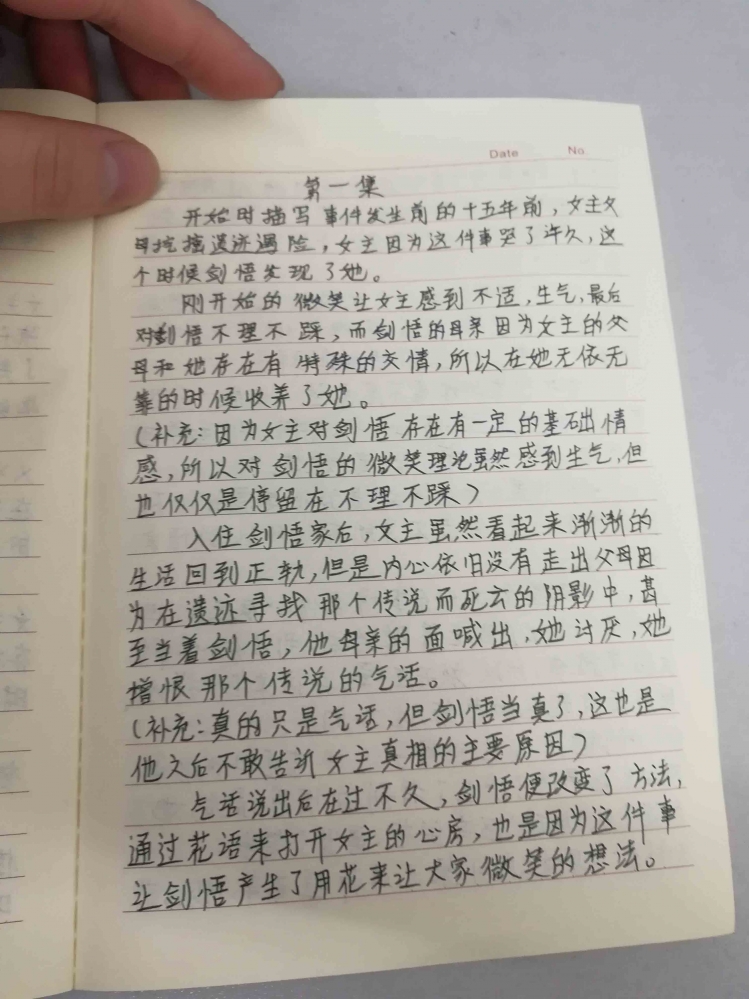 Date No.
第一集
开始时描写事件发生前的十五年前，女主父
母挖掘遗迹遇险，女主因为这件事哭了许久，这
个时候剑悟发现了她。
刚开始的微笑让女主感到不适，生气，最后
对剑悟不理不踩，而剑悟的母亲因为女主的父
母和她存在有特殊的交情，所以在她无依无
靠的时候收养了她。
（补充：因为女主对剑悟存在有一定的基础情
感，所以对剑悟的微笑理论虽然感到生气，但
也仅仅是停留在不理不踩）
入住剑悟家后，女主虽然看起来渐渐的
生活回到正轨，但是内心依旧没有走出父母因
为在遗迹寻找那个传说而死去的阴影中，甚
至当着剑悟，他母亲的面喊出，她讨厌，她
增恨那个传说的气话。
（补充：真的只是气话，但剑悟当真了，这也是
他之后不敢告诉女主真相的主要原因）
气话说出后在过不久，剑悟便改变了方法，
通过花语来打开女主的心房，也是因为这件事
让剑悟产生了用花来让大家微笑的想法。